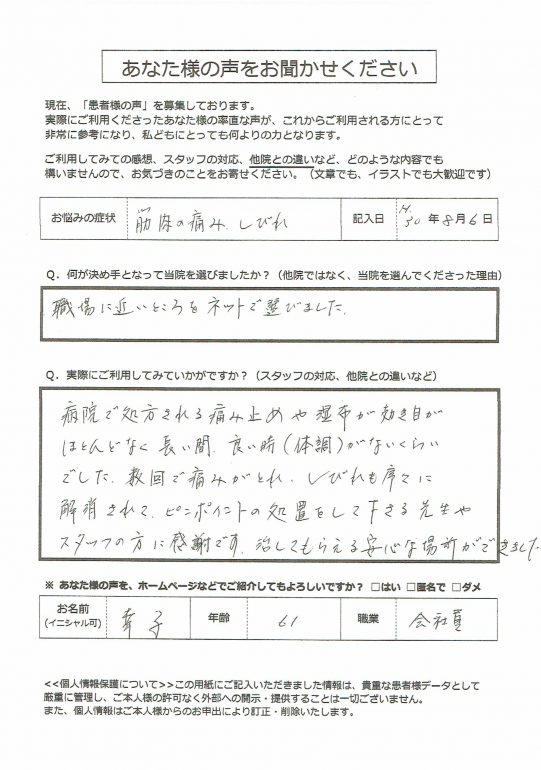 あなた様の声をお聞かせください
現在、「患者様の声」を募集しております。
実際にご利用くださったあなた様の率直な声が、これからご利用される方にとって
非常に参考になり、私どもにとっても何よりの力となります。
ご利用してみての感想、スタッフの対応、他院との違いなど、どのような内容でも
構いませんので、お気づきのことをお寄せください。（文章でも、イラストでも大歓迎です）
お悩みの症状 筋肉の痛み、しびれ 記入日 H.30年8月6日
Q．何が決め手となって当院を選びましたか？（他院ではなく、当院を選んでくださった理由）
職場に近いところをネットで選びました。
Q．実際にご利用してみていかがですか？（スタッフの対応、他院との違いなど）
病院で処方される痛み止めや湿布が効き目が
ほとんどなく長い間、良い時（体調）がないくらい
でした。数回で痛みがとれ、しびれも序々に
解消されて、ピンポイントの処置をして下さる先生や
スタッフの方に感謝です。治してもらえる安心な場所ができました
※ あなた様の声を、ホームページなどでご紹介してもよろしいですか？ □はい □匿名で □ダメ
お名前 子 年齢 61 職業 会社員
(イニシャル可)
<<個人情報保護について>>この用紙にご記入いただきました情報は、貴重な患者様データとして
厳重に管理し、ご本人様の許可なく外部への開示・提供することは一切ございません。
また、個人情報はご本人様からのお申出により訂正・削除いたします。